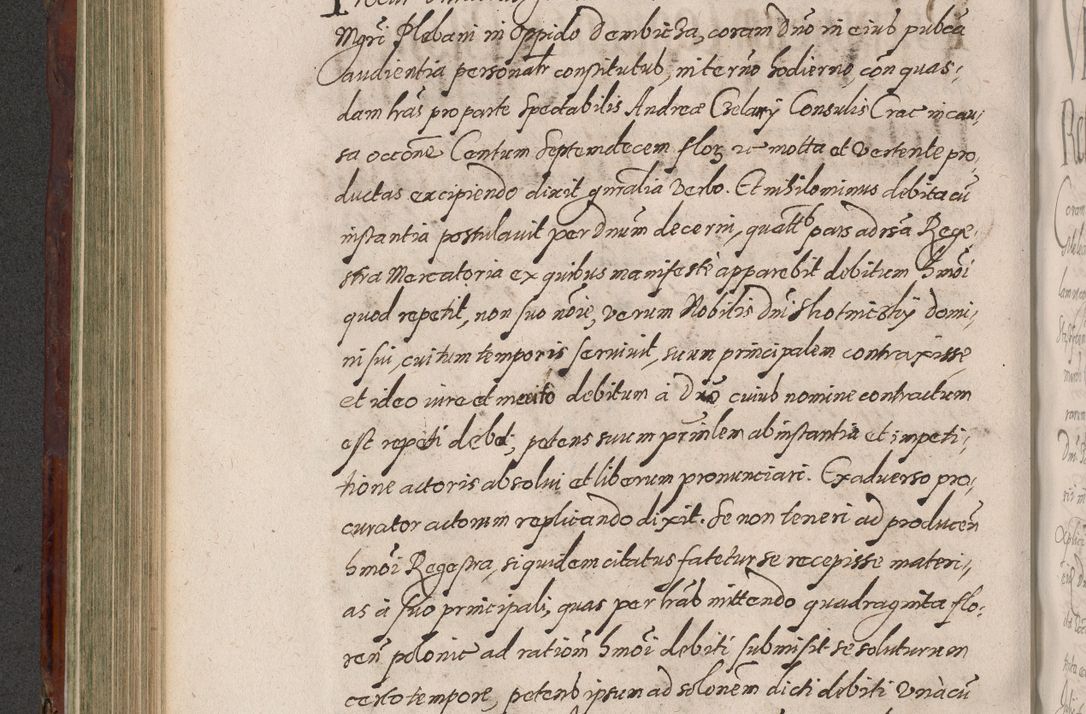 Mgri Plebani in Oppido Dembicza, coram Dno in eius pubca
audientia personatr constitutus, in termo hodierno, con quas,
dam lras pro parte Spectabilis Andreæ Czelary Consulis Crac in cau,
sa occone Centum Septemdecem flor, ac motta et Vertente pro,
ductas excipiendo dixit gnralia verbo. Et nihilominus debita cu
instantia postulavit per Dnum decerni, quatts pars adrsa Rege,
stra Mercatoria ex quibus manifestè apparebit debitum hmoi
quod repetit, non suo noie, verum Nobilis Dni Slotnicskÿ domi,
ni sui, cui tum temporis servivit, suum principalem contraxisse
et ideo iure et merito debitum à Dno cuius nomine contractum
est repeti debet, petens suum prinlem ab instantia et impeti,
tione actoris absolvi et liberum pronunciari. Ex adverso pro,
curator actorum replicando dixit. Se non teneri ad producen
hmoi Regestra, siquidem citatus fatetur se recepisse materi,
as à suo principali, quas per lras mittendo quadraginta flo,
ren polonic ad rationem hmoi debiti submisit se soluturum
certo tempore, petens ipsum ad solonem dicti debiti Unà cu